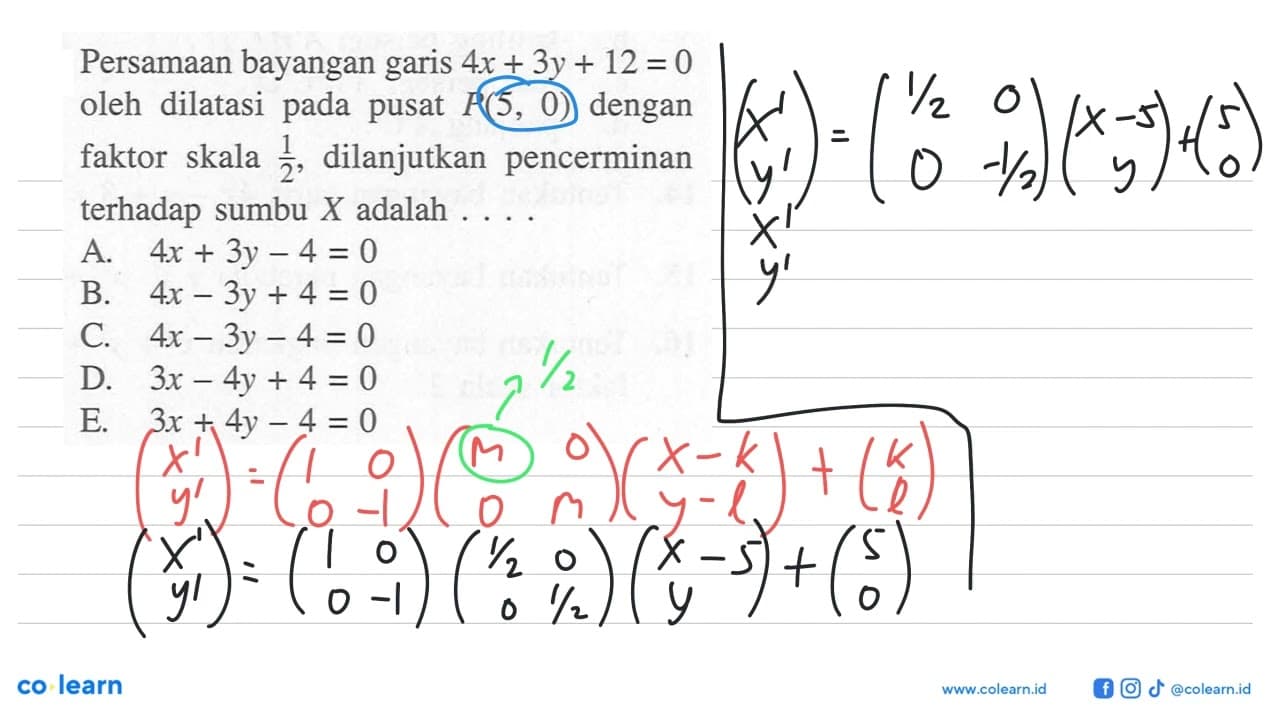 Persamaan bayangan garis 4x + 3y + 12 = 0
oleh dilatasi pada pusat P(5, 0) dengan
faktor skala 1/2, dilanjutkan pencerminan
terhadap sumbu X adalah . . . .
A. 4x + 3y – 4 = 0
B. 4x – 3y + 4 = 0
C. 4x – 3y – 4 = 0
D. 3x – 4y + 4 = 0
E. 3x + 4y – 4 = 0
1/2
(x' y') = (1 0 0 -1) (m 0 0 m) (x-k y-l) + (k l)
(x' y') = (1 0 0 -1) (1/2 0 0 1/2) (x-5 y) + (5 0)
(x' y') = (1/2 0 0 -1/2) (x-5 y) + (5 0)
x'
y'
co learn
www.colearn.id
@colearn.id